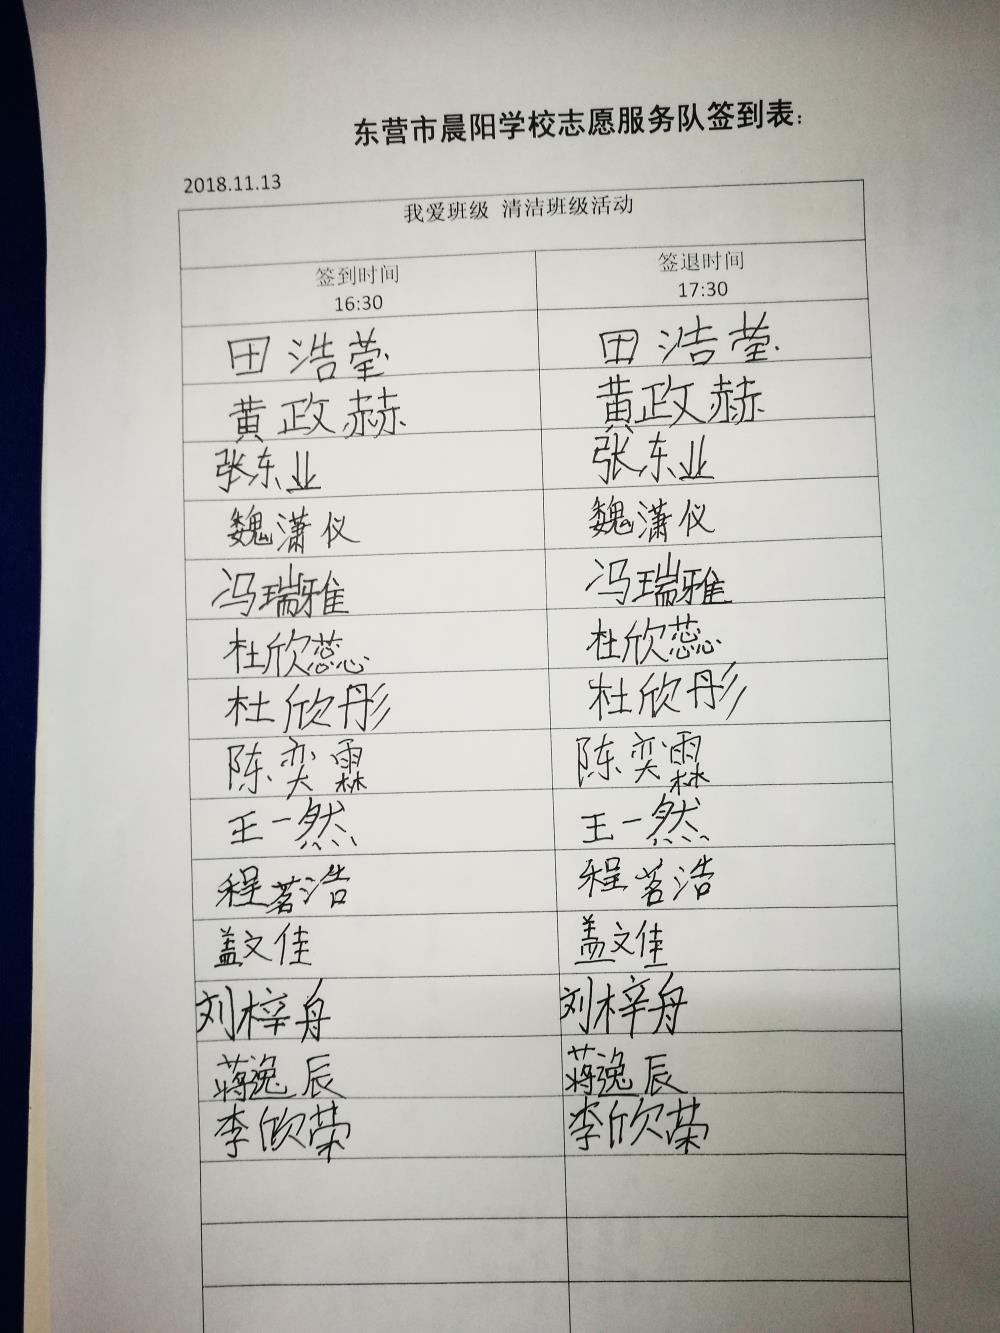 东营市晨阳学校志愿服务队签到表:
2018.11.13
我爱班级 清洁班级活动
签到时间 签退时间
16:30 17:30
田浩莹 田浩莹
黄政赫 黄政赫
张东业 张东业
魏潇仪 魏潇仪
冯瑞雅 冯瑞雅
杜欣蕊 杜欣蕊
杜欣彤 杜欣彤
陈奕霖 陈奕霖
王一然 王一然
程茗浩 程茗浩
盖文佳 盖文佳
刘梓舟 刘梓舟
蒋逸辰 蒋逸辰
李欣荣 李欣荣